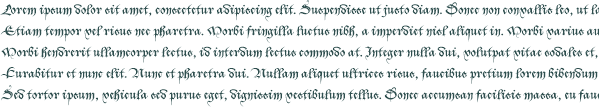 Lorem ipsum dolor sit amet, consectetur adipiscing elit. Suspendisse ut justo diam. Donec non convallis leo, ut l
Etiam tempor vel risus nec pharetra. Morbi fringilla luctus nibh, a imperdiet nisl aliquet in. Morbi varius au
Morbi hendrerit ullamcorper lectus, id interdum lectus commodo at. Integer nulla dui, volutpat vitae sodales et,
Curabitur et nunc elit. Nunc et pharetra dui. Nullam aliquet ultrices risus, faucibus pretium lorem bibendum
Sed tortor ipsum, vehicula sed purus eget, dignissim vestibulum tellus. Donec accumsan facilisis massa, eu fauc